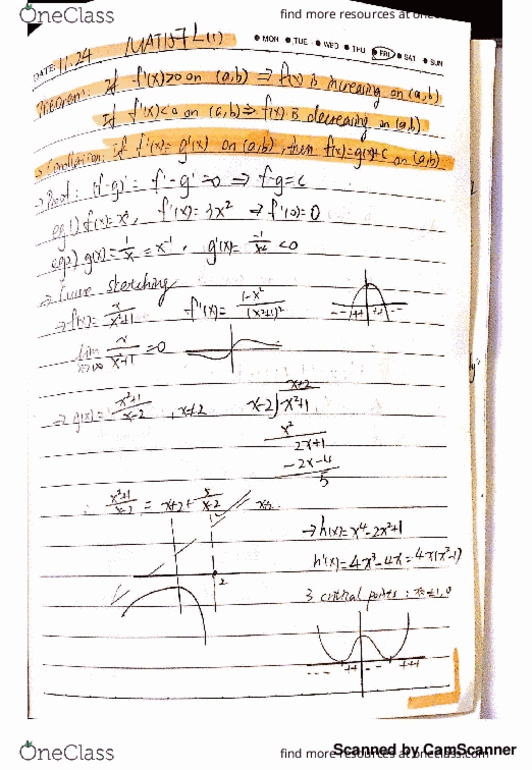 OneClass find more resources at oneclass.com
DATE: 11.24 MAT157 L(1) • MON • TUE • WED • THU • FRI • SAT • SUN
Theorem: If f'(x)>0 on (a,b) ⇒ f(x) is increasing on (a,b)
If f'(x)<0 on (a,b) ⇒ f(x) is decreasing on (a,b)
If f'(x) = g'(x) on (a,b), then f(x)=g(x)+C on (a,b)
→ Proof: (f-g)' = f'-g' = 0 ⇒ f-g=c
eg1) f(x)=x³, f'(x)=3x² ⇒ f'(0)=0
eg2) g(x)=1/x = x⁻¹, g'(x)= -1/x² <0
→ Curve sketching
→ f(x)= x/(x²+1) f'(x)= (1-x²)/(x²+1)²
lim x/(x²+1) =0
→ g(x)= (x²+1)/(x-2) , x≠2
x+2
x-2 x²+1
x²
2x+1
-2x-4
5
∴ (x²+1)/(x-2) = x+2+ 5/(x-2)
2
→ h(x)=x⁴-2x²+1
h'(x)=4x³-4x=4x(x²-1)
3 critical points: x=±1,0
OneClass find more resources at oneclass.com
Scanned by CamScanner